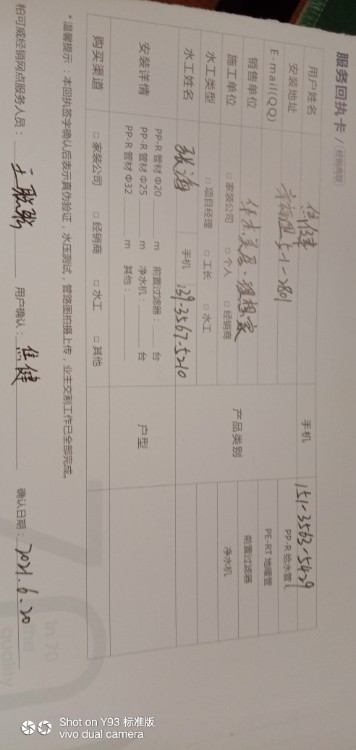 服务回执卡 / 经销商联
用户姓名 焦健 手机 151-3563-5429
安装地址 5-1-2801
E-mail(QQ)
销售单位 产品类别 PP-R 给水管 PE-RT 地暖管 前置过滤器 净水机
施工单位 □ 家装公司 □ 个人 □ 经销商
水工类型 □ 项目经理 □ 工长 □ 水工
水工姓名 张海 手机 139-3567-5210
安装详情 PP-R 管材 Φ20 m 前置过滤器: 台 户型
PP-R 管材 Φ25 m 净水机: 台
PP-R 管材 Φ32 m 其他:
购买渠道 □ 家装公司 □ 经销商 □ 水工 □ 其他
*温馨提示:本回执签字确认后表示真伪验证,水压测试,管路图拍摄上传,业主交割工作已全部完成。
柏可威经销网点服务人员: 用户确认: 焦健 确认日期: 2021.6.20
in 70
quality
Shot on Y93 标准版
vivo dual camera